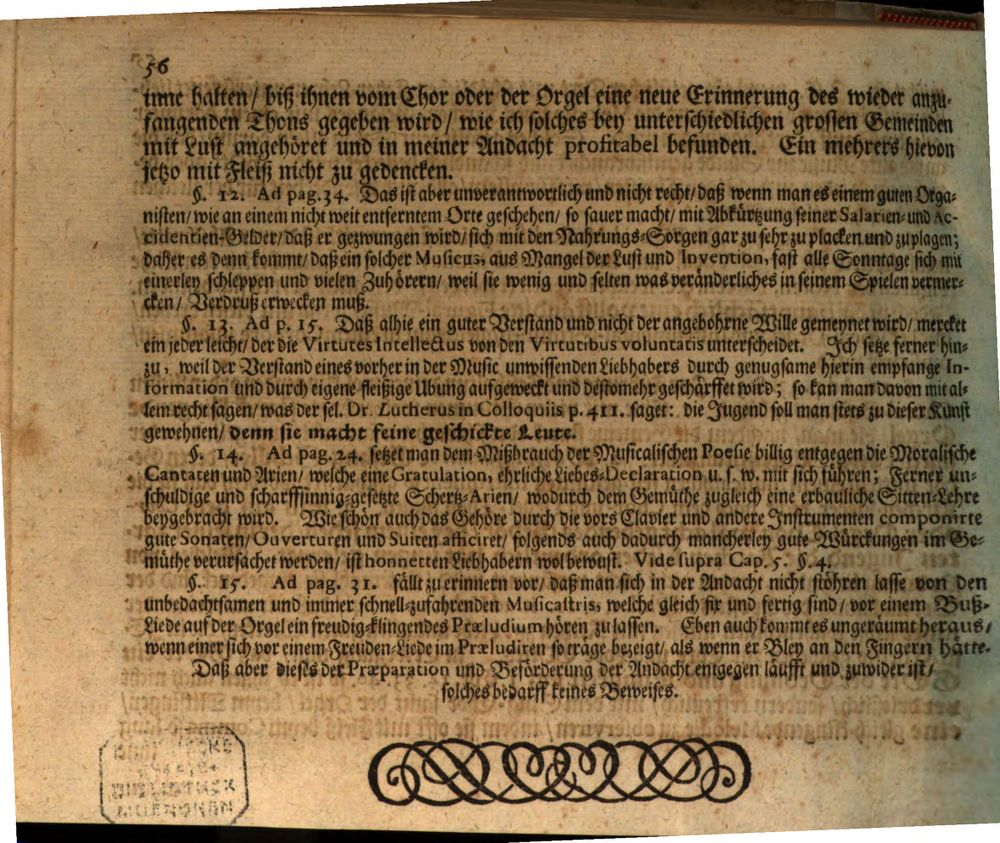 56
inne halten/ biß ihnen vom Chor oder der Orgel eine neue Erinnerung des wieder anzu-
fangenden Thons gegeben wird/ wie ich solches bey unterschiedlichen grossen Gemeinden
mit Lust angehöret und in meiner Andacht profitabel befunden. Ein mehrers hievon
jetzo mit Fleiß nicht zu gedencken.
§. 12. Ad pag. 34. Das ist aber unverantwortlich und nicht recht/ daß wenn man es einem guten Orga-
nisten/ wie an einem nicht weit entferntem Orte geschehen/ so sauer macht/ mit Abkürtzung seiner Salarien- und Ac-
cidentien-Gelder/ daß er gezwungen wird/ sich mit den Nahrungs-Sorgen gar zu sehr zu placken und zu plagen;
daher es denn kommt/ daß ein solcher Musicus, aus Mangel der Lust und Invention, fast alle Sonntage sich mit
einerley schleppen und vielen Zuhörern/ weil sie wenig und selten was veränderliches in seinem Spielen vermer-
cken/ Verdruß erwecken muß.
§. 13. Ad p. 15. Daß alhie ein guter Verstand und nicht der angebohrne Wille gemeynet wird/ mercket
ein jeder leicht/ der die Virtutes Intellectus von den Virtutibus voluntatis unterscheidet. Ich setze ferner hin-
zu, weil der Verstand eines vorher in der Music unwissenden Liebhabers durch genugsame hierin empfange In-
formation und durch eigene fleißige Ubung aufgeweckt und destomehr geschärffet wird; so kan man davon mit al-
lem recht sagen/ was der sel. Dr. Lutherus in Colloquiis p. 411. saget: die Jugend soll man stets zu dieser Kunst
gewehnen/ denn sie macht feine geschickte Leute.
§. 14. Ad pag. 24. setzet man dem Mißbrauch der Musicalischen Poesie billig entgegen die Moralische
Cantaten und Arien/ welche eine Gratulation, ehrliche Liebes-Declaration u. s. w. mit sich führen; Ferner un-
schuldige und scharffsinnig-gesetzte Schertz-Arien/ wodurch dem Gemüthe zugleich eine erbauliche Sitten-Lehre
beygebracht wird. Wie schön auch das Gehöre durch die vors Clavier und andere Instrumenten componirte
gute Sonaten/ Ouverturen und Suiten afficiret/ folgends auch dadurch mancherley gute Würckungen im Ge-
müthe verursachet werden/ ist honnetten Liebhabern wol bewust. Vide supra Cap. 5. §. 4.
§. 15. Ad pag. 31. fällt zu erinnern vor/ daß man sich in der Andacht nicht stöhren lasse von den
unbedachtsamen und immer schnell-zufahrenden Musicastris, welche gleich fix und fertig sind/ vor einem Buß-
Liede auf der Orgel ein freudig-klingendes Præludium hören zu lassen. Eben auch kommt es ungeräumt heraus/
wenn einer sich vor einem Freuden-Liede im Præludiren so träge bezeigt/ als wenn er Bley an den Fingern hätte.
Daß aber dieses der Præparation und Beförderung der Andacht entgegen läufft und zuwider ist/
solches bedarff keines Beweises.
BIBLIOTHEK
MUENCHEN